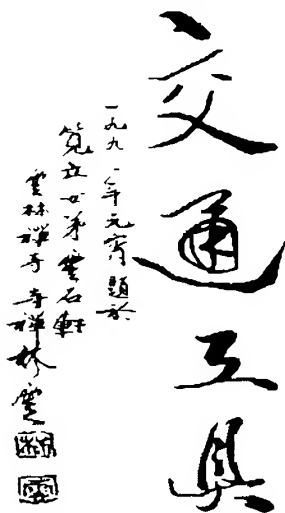 交通工具
一九九一年元宵題於
立女弟雲石軒
雲林禪寺 寺禪林雲